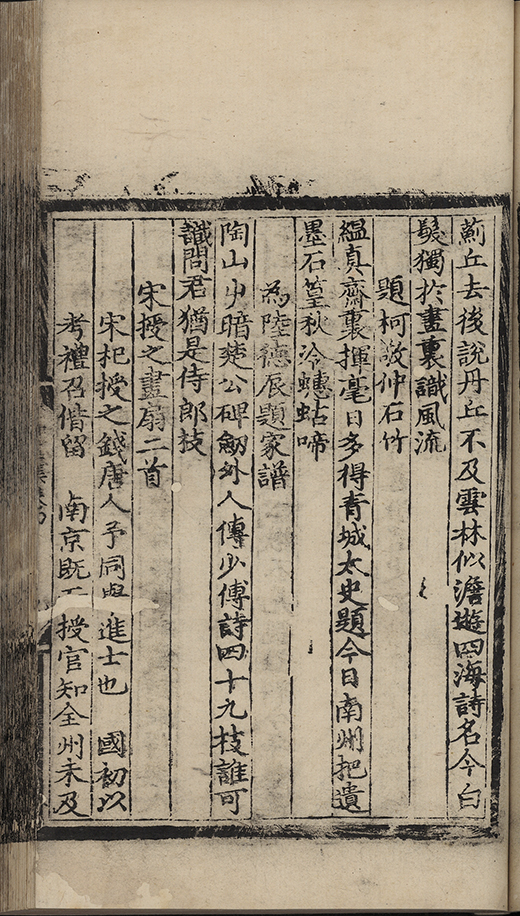 薊丘去後說丹丘不及雲林似澹遊四海詩名今白
髮獨於畫裏識風流
題柯敬仲石竹
緼真齋裏揮毫日多得青城太史題今日南州把遺
墨石篁秋冷蟪蛄啼
為陸德展題家譜
陶山火暗楚公碑劒外人傳少傅詩四十九枝誰可
識問君猶是侍郎技
宋授之畫扇二首
宋杞授之錢唐人予同與進士也 國初以
考禮召偕留 南京既 授官知全州未及